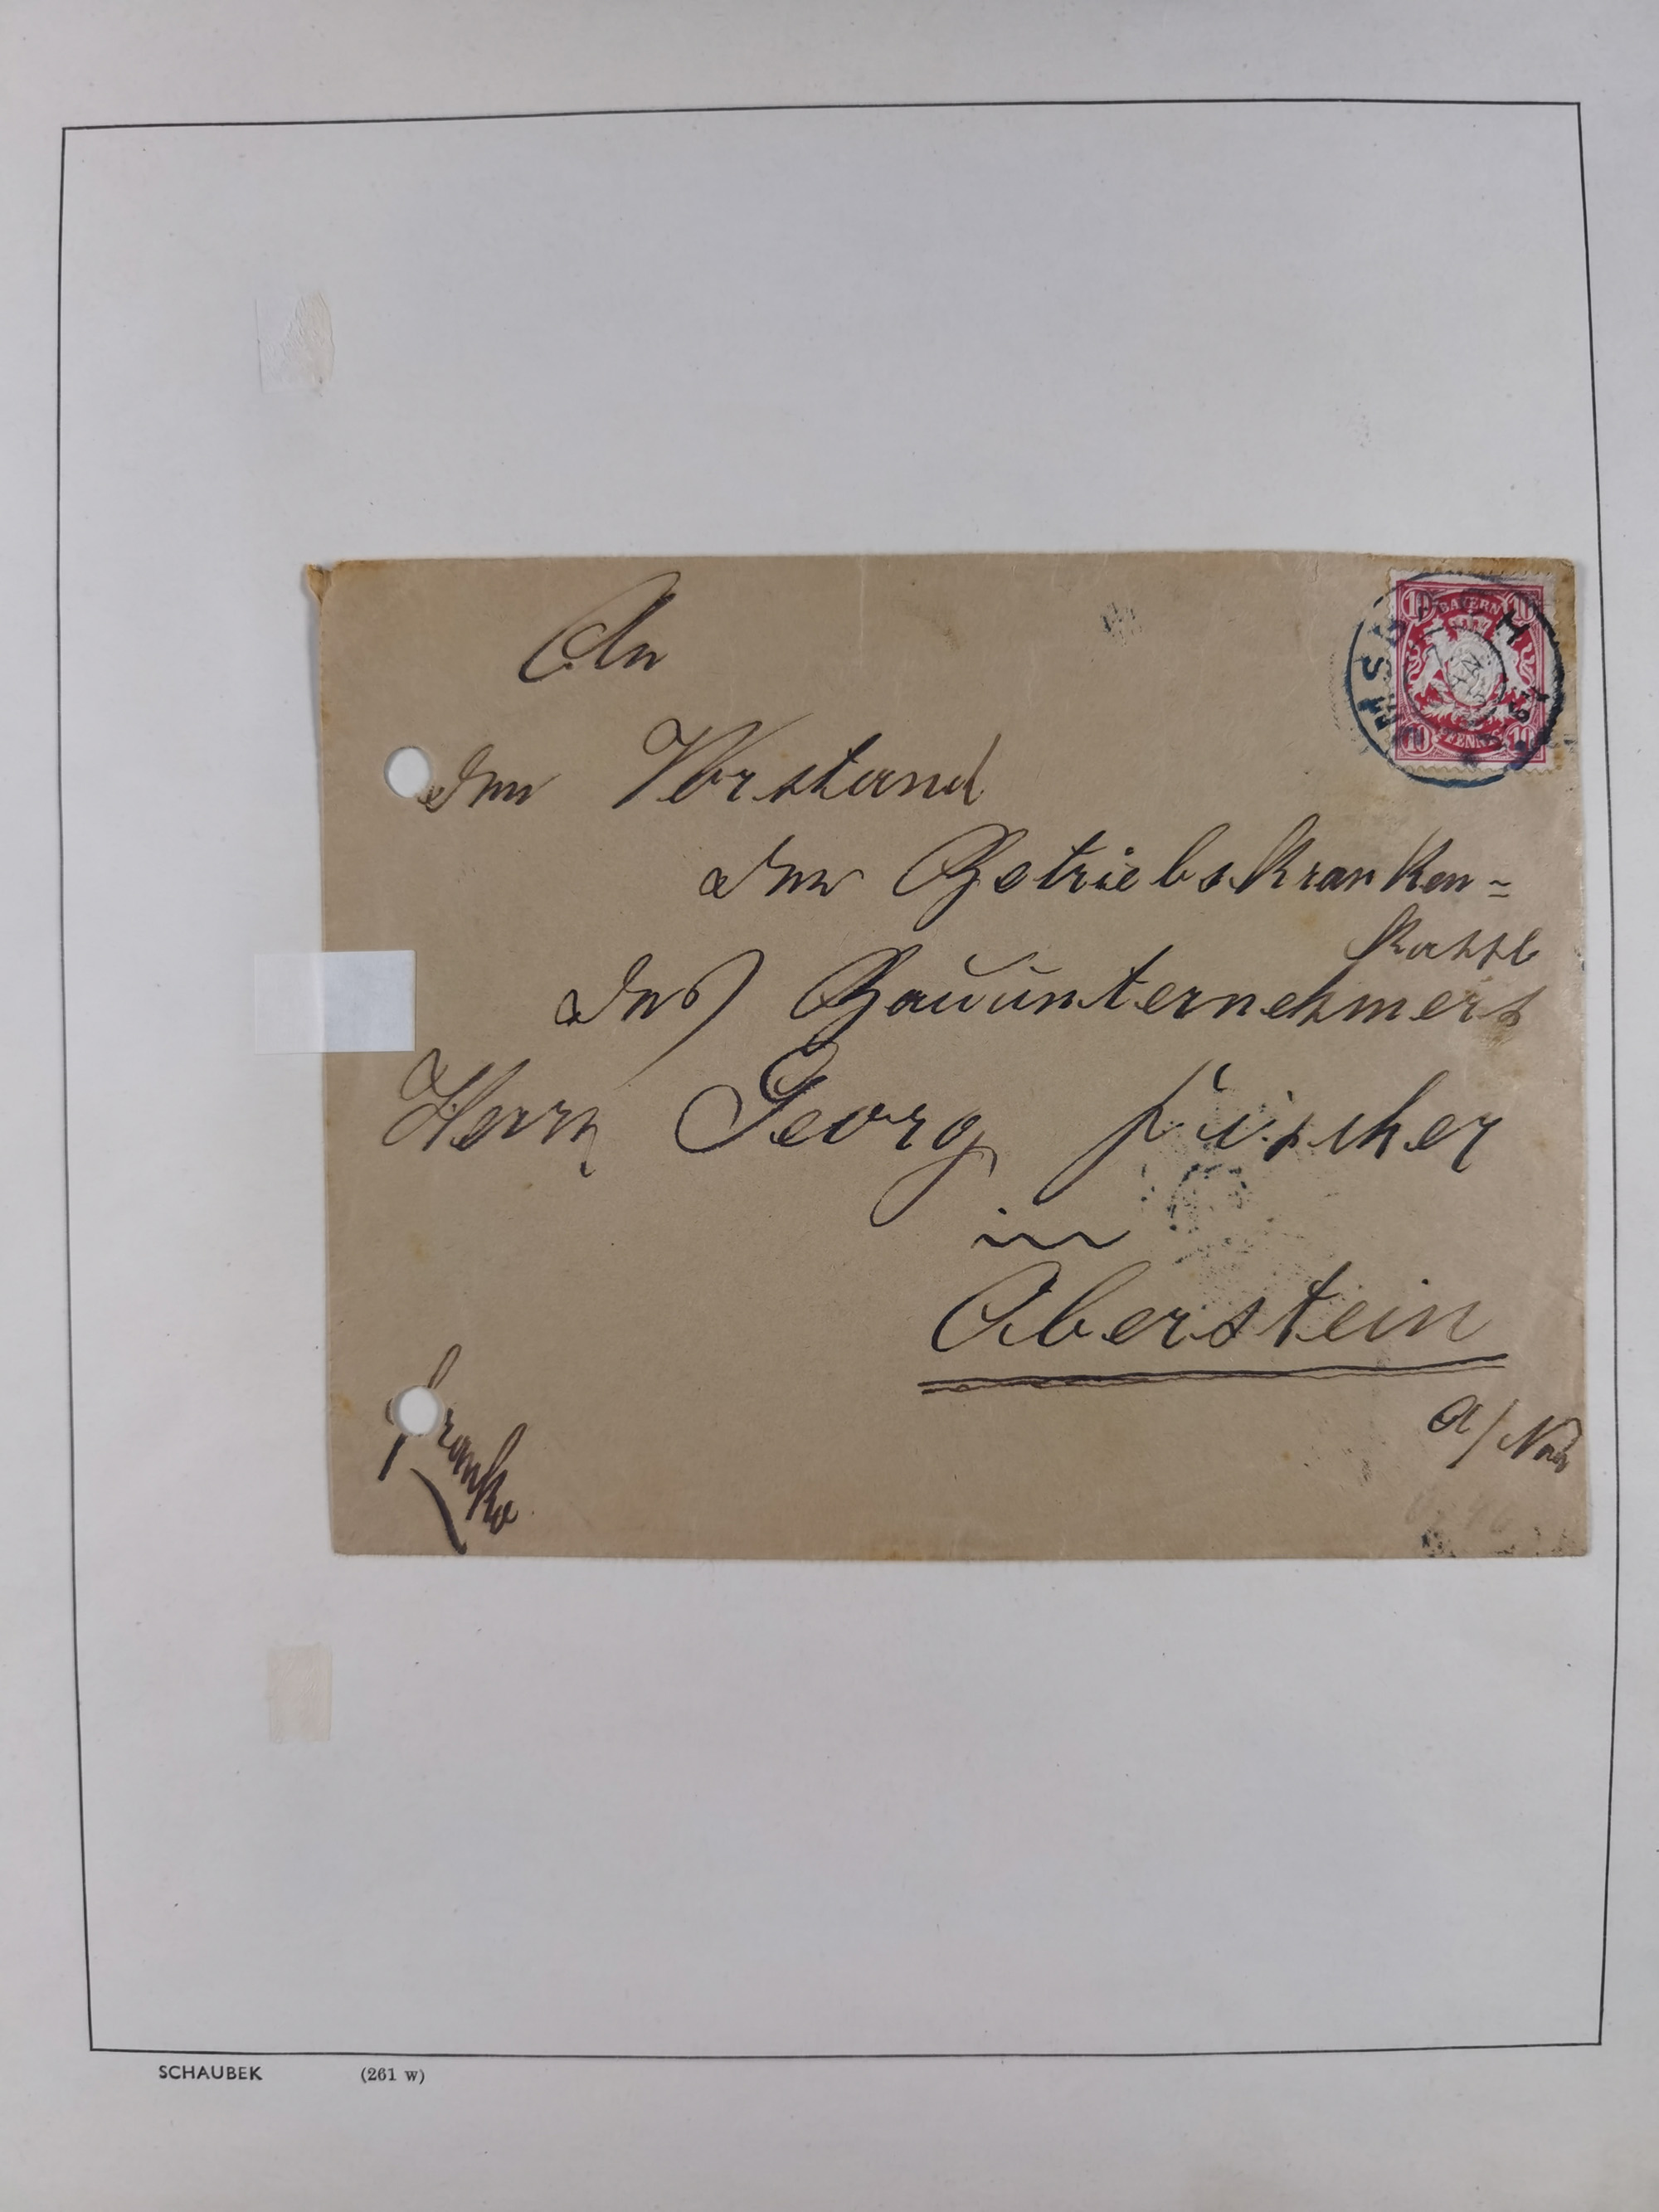 An
den Vorstand
der Betriebskranken=
kasse
des Bauunternehmers
Herrn Georg Fischer
in
Oberstein
a/Nahe
Franko
10 BAYERN 10
10 PFENNIG 10
JAN
SCHAUBEK (261 w)